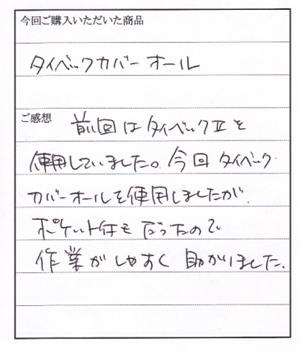 今回ご購入いただいた商品
タイベックカバーオール
ご感想
前回はタイベックⅡを
使用していました。今回タイベック
カバーオールを使用しましたが、
ポケット付きだったので
作業がしやすく助かりました。